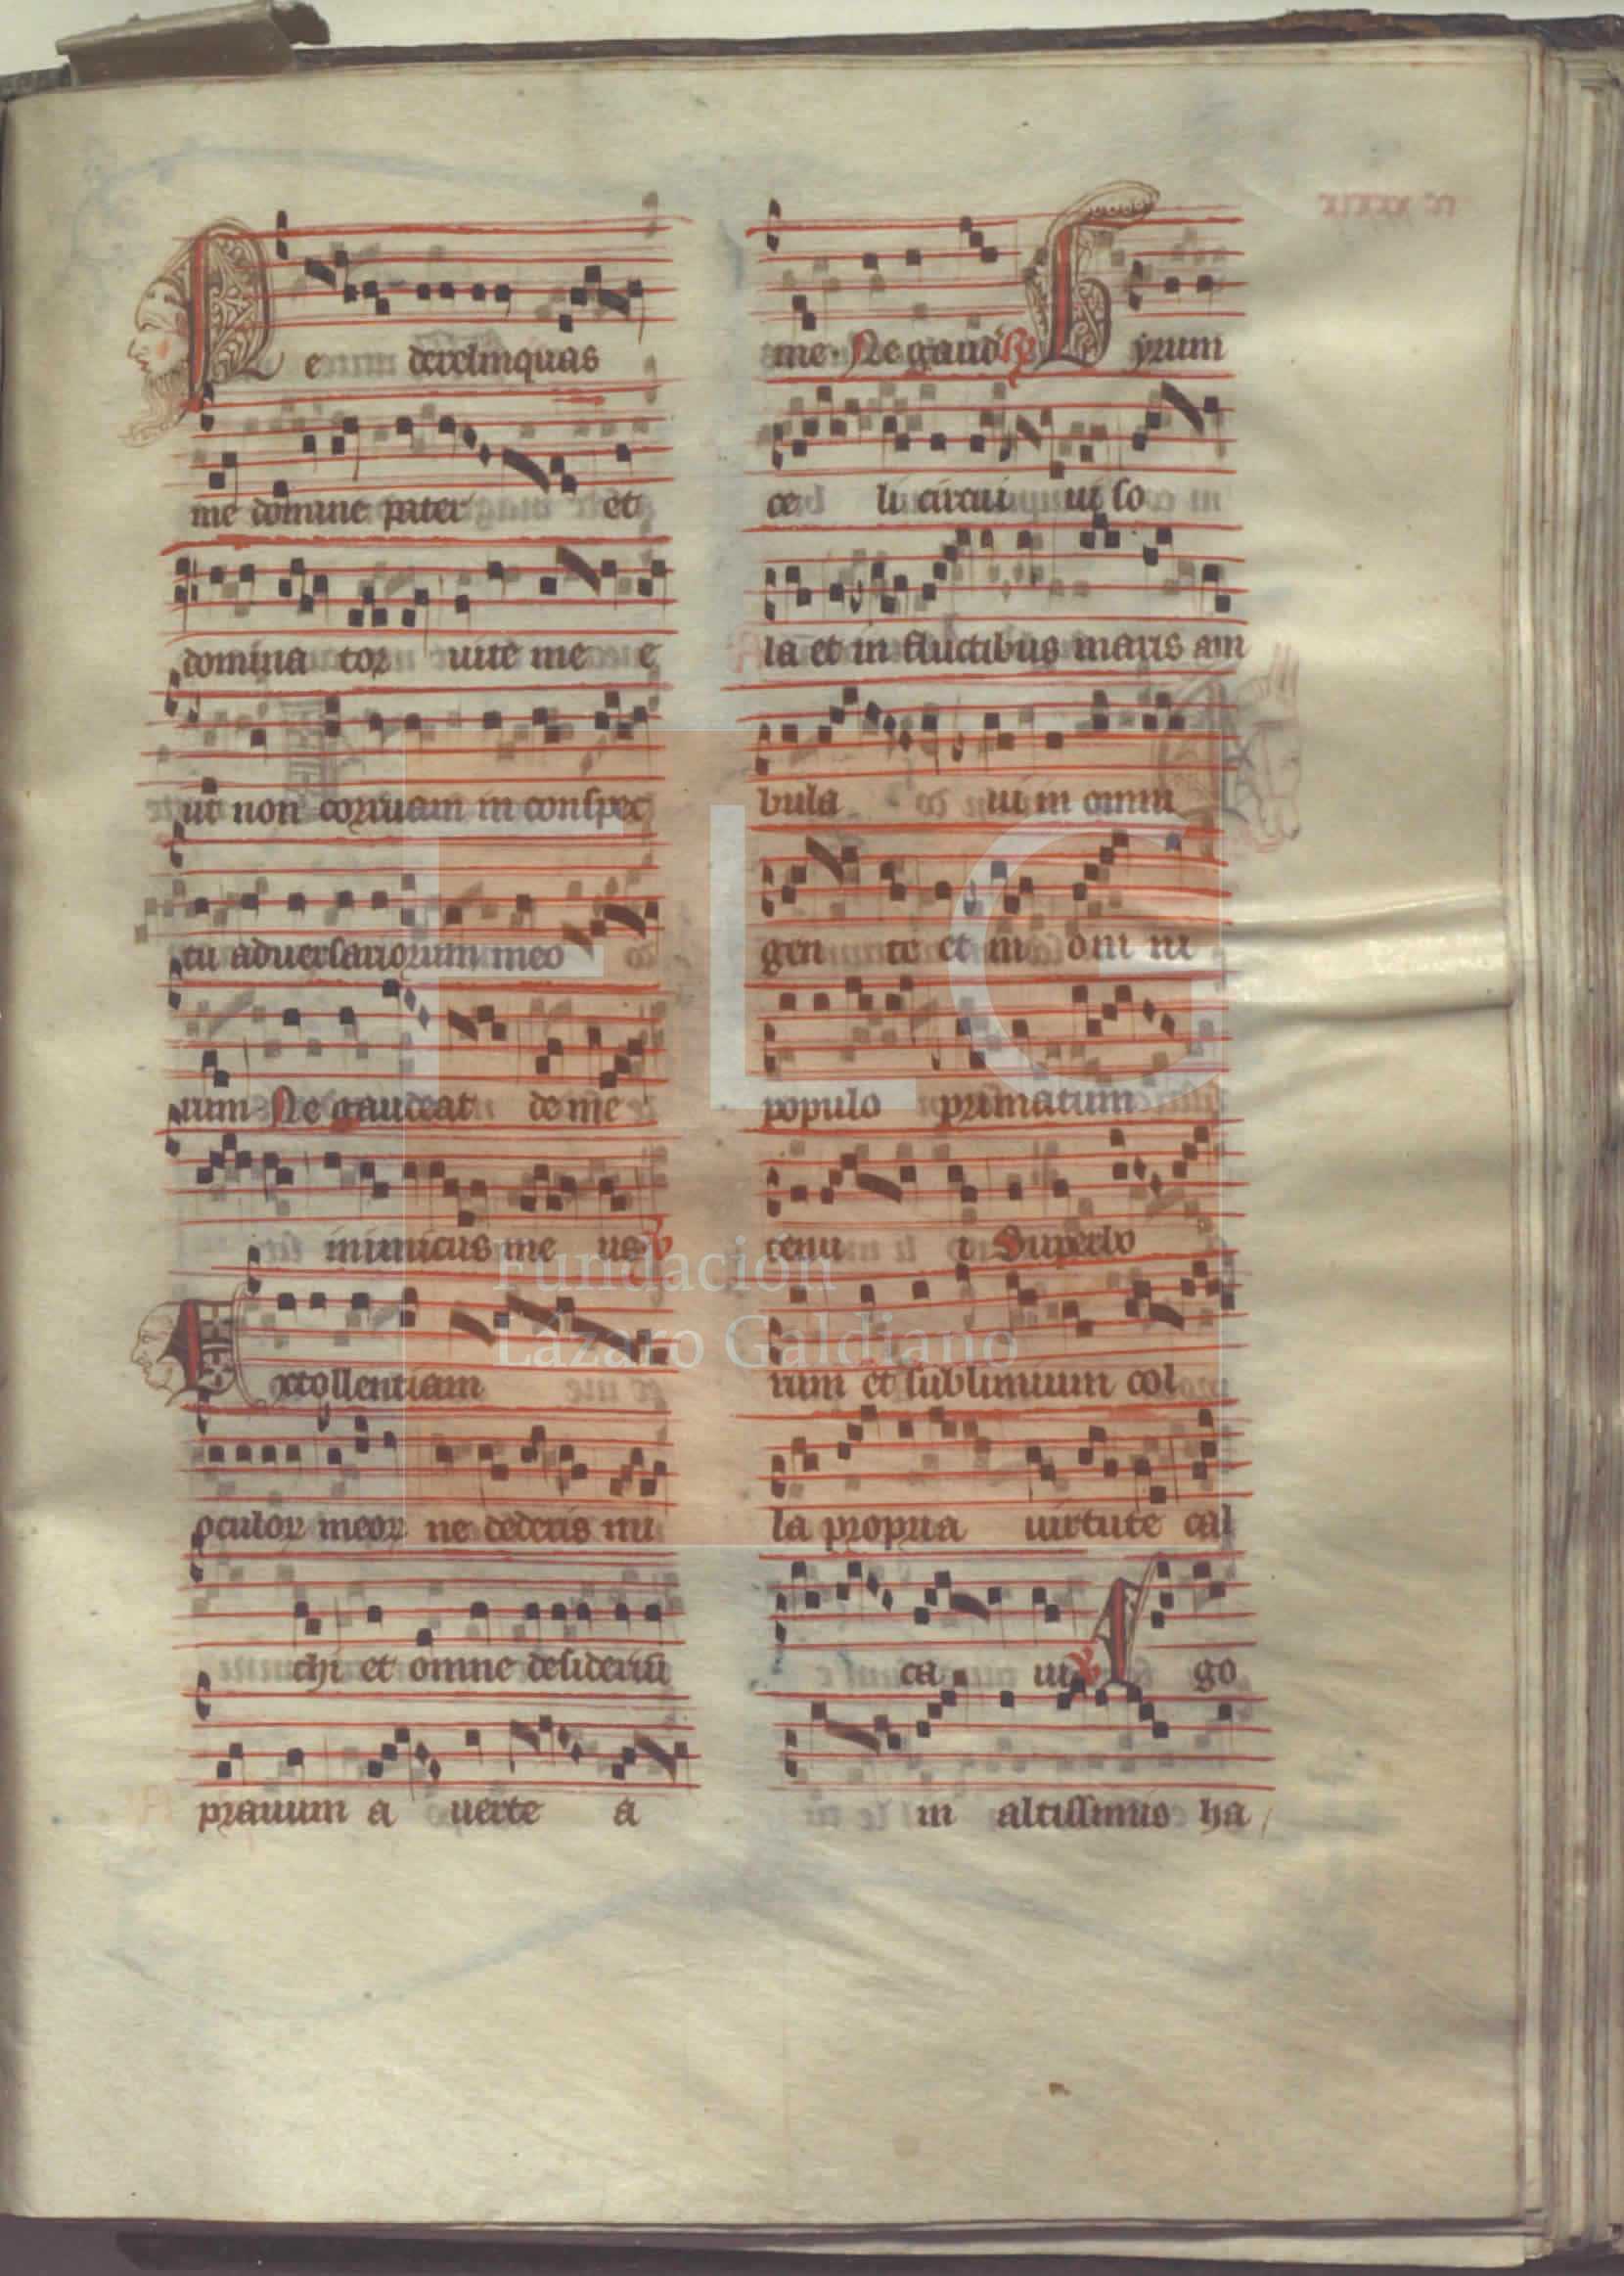 Ne derelinquas
me domine pater et
domina tor uite me e
ut non corruam in conspec
tu aduersariorum meo
rum Ne gaudeat de me
inimicus me us ℣
Extollentiam
oculoꝝ meoꝝ ne dederis mi
chi et omne desideriū
prauum a uerte a
me. Ne gaud℟ Gyrum
ce li circui ui so
la et in fluctibus maris am
bula ui in omni
gen te et in om ni
populo primatum
tenu i Superbo
rum et sublimium col
la propria uirtute cal
ca ui ℣ Ego
in altissimis ha
Fundación
Lázaro Galdiano
FLG